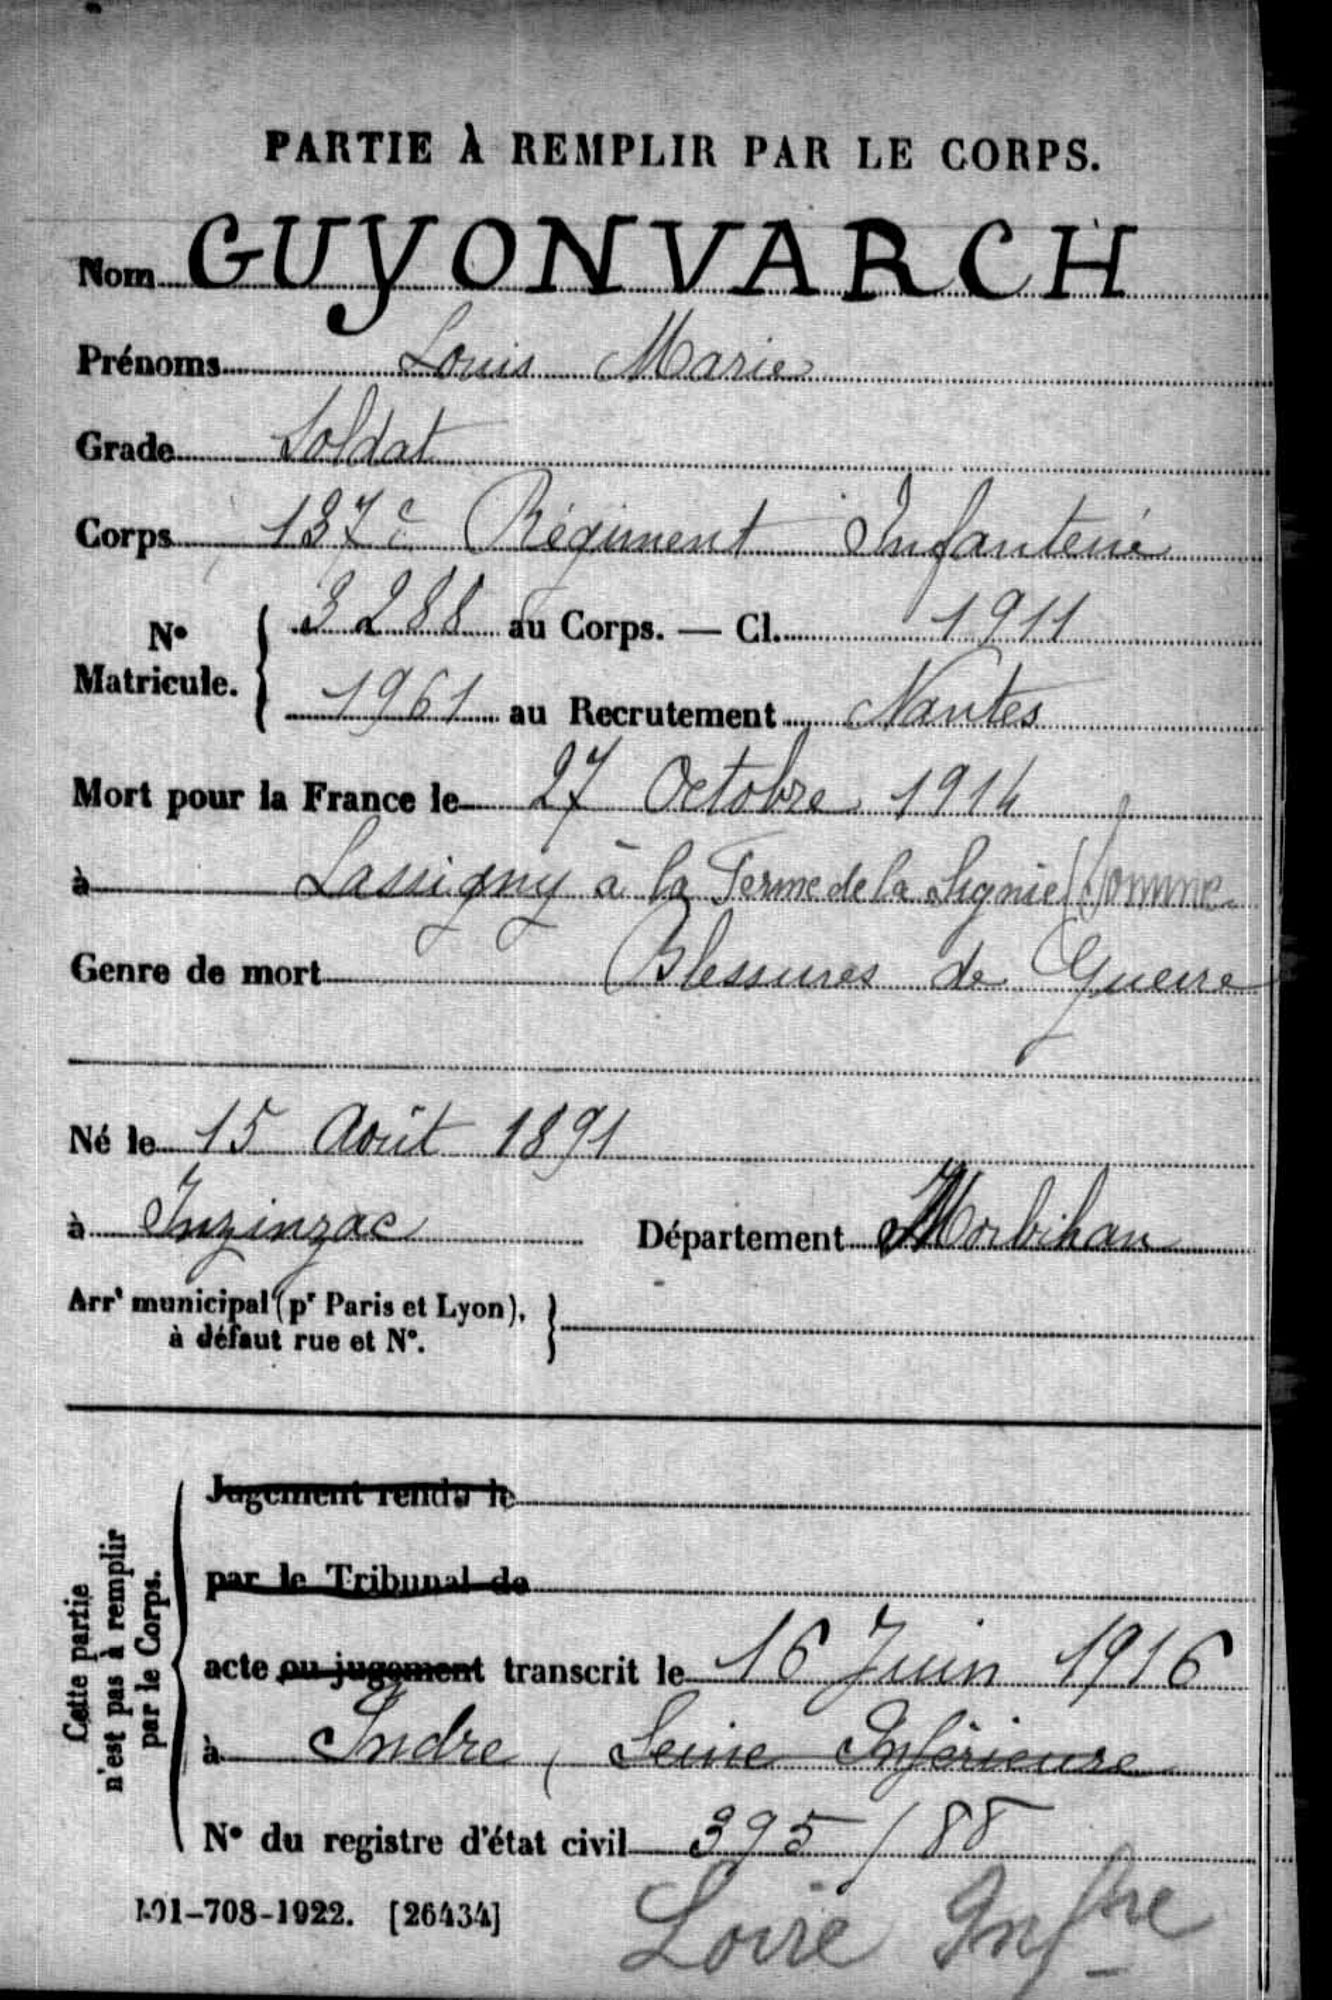 PARTIE À REMPLIR PAR LE CORPS.
Nom GUYONVARCH
Prénoms Louis Marie
Grade Soldat
Corps 137e Régiment Infanterie
No Matricule. { 3288 au Corps. — Cl. 1911
1961 au Recrutement Nantes
Mort pour la France le 27 Octobre 1914
à Lassigny à la Ferme de la Signie (Somme
Genre de mort Blessures de Guerre
Né le 15 Août 1891
à Inzinzac Département Morbihan
Arrt municipal (pr Paris et Lyon), à défaut rue et No.
Cette partie n'est pas à remplir par le Corps.
Jugement rendu le
par le Tribunal de
acte ou jugement transcrit le 16 Juin 1916
à Indre, Seine Inférieure
No du registre d'état civil 395/88
Loire Infre
101-708-1922. [26434]